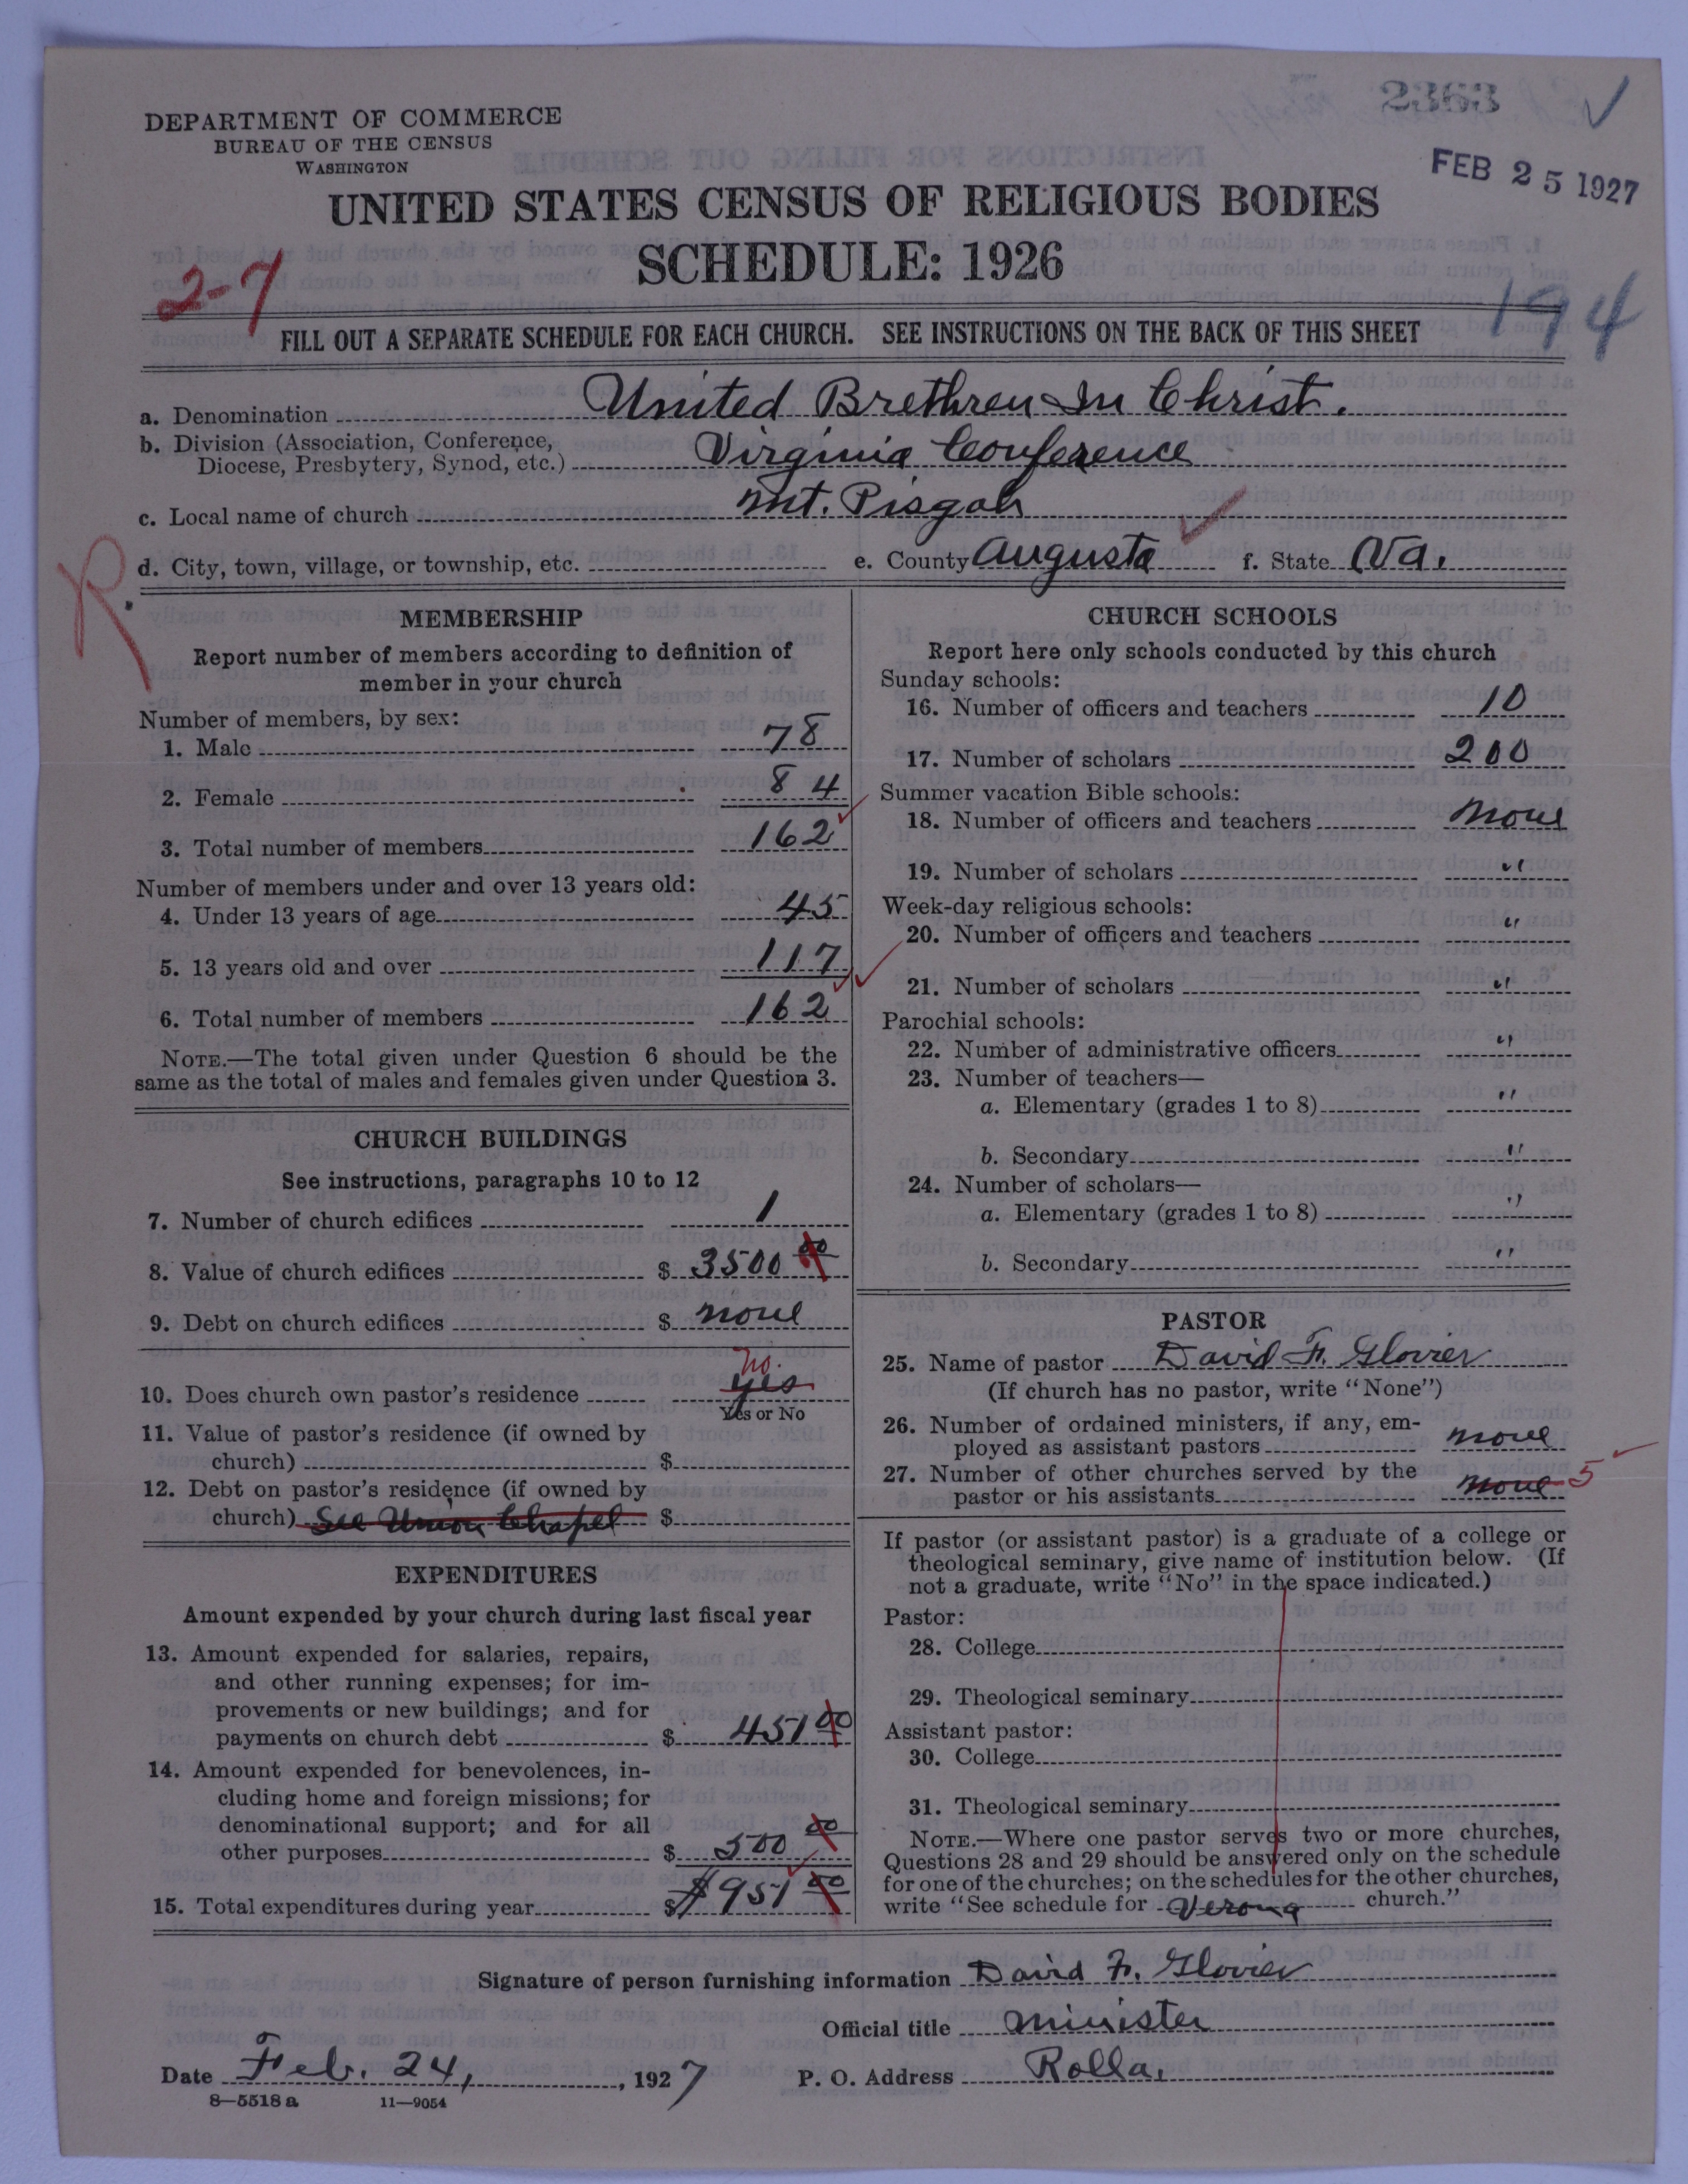 2363 ✓
DEPARTMENT OF COMMERCE
BUREAU OF THE CENSUS
WASHINGTON
FEB 25 1927
UNITED STATES CENSUS OF RELIGIOUS BODIES
SCHEDULE: 1926
2-7
194
FILL OUT A SEPARATE SCHEDULE FOR EACH CHURCH. SEE INSTRUCTIONS ON THE BACK OF THIS SHEET
a. Denomination United Brethren In Christ.
b. Division (Association, Conference,
Diocese, Presbytery, Synod, etc.) Virginia Conference
c. Local name of church Mt. Pisgah
d. City, town, village, or township, etc. e. County Augusta f. State Va.
R.
MEMBERSHIP
Report number of members according to definition of
member in your church
Number of members, by sex:
1. Male 78
2. Female 84
3. Total number of members 162
Number of members under and over 13 years old:
4. Under 13 years of age 45
5. 13 years old and over 117
6. Total number of members 162
NOTE.—The total given under Question 6 should be the
same as the total of males and females given under Question 3.
CHURCH BUILDINGS
See instructions, paragraphs 10 to 12
7. Number of church edifices 1
8. Value of church edifices $ 3500 00
9. Debt on church edifices $ none
no.
10. Does church own pastor's residence yes
Yes or No
11. Value of pastor's residence (if owned by
church) $
12. Debt on pastor's residence (if owned by
church) See Union Chapel $
EXPENDITURES
Amount expended by your church during last fiscal year
13. Amount expended for salaries, repairs,
and other running expenses; for im-
provements or new buildings; and for
payments on church debt $ 451 00
14. Amount expended for benevolences, in-
cluding home and foreign missions; for
denominational support; and for all
other purposes $ 500 00
15. Total expenditures during year $ $951 00
CHURCH SCHOOLS
Report here only schools conducted by this church
Sunday schools:
16. Number of officers and teachers 10
17. Number of scholars 200
Summer vacation Bible schools:
18. Number of officers and teachers None
19. Number of scholars "
Week-day religious schools:
20. Number of officers and teachers "
21. Number of scholars "
Parochial schools:
22. Number of administrative officers "
23. Number of teachers—
a. Elementary (grades 1 to 8) "
b. Secondary "
24. Number of scholars—
a. Elementary (grades 1 to 8) "
b. Secondary "
PASTOR
25. Name of pastor David F. Glovier
(If church has no pastor, write "None")
26. Number of ordained ministers, if any, em-
ployed as assistant pastors None
27. Number of other churches served by the
pastor or his assistants None 5
If pastor (or assistant pastor) is a graduate of a college or
theological seminary, give name of institution below. (If
not a graduate, write "No" in the space indicated.)
Pastor:
28. College
29. Theological seminary
Assistant pastor:
30. College
31. Theological seminary
NOTE.—Where one pastor serves two or more churches,
Questions 28 and 29 should be answered only on the schedule
for one of the churches; on the schedules for the other churches,
write "See schedule for Verona church."
Signature of person furnishing information David F. Glovier
Official title Minister
Date Feb. 24, , 1927 P. O. Address Rolla.
8—5518 a 11—9054